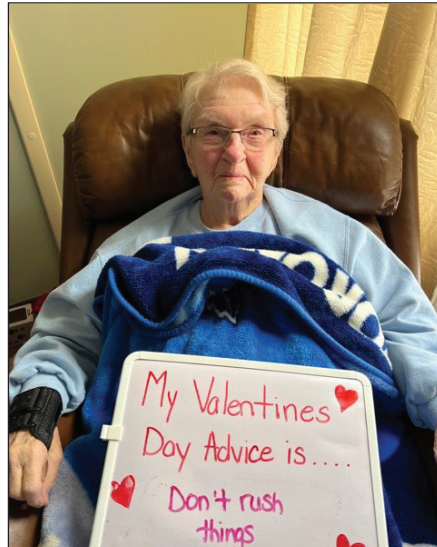 My Valentines
Day Advice is....
Don't rush
things